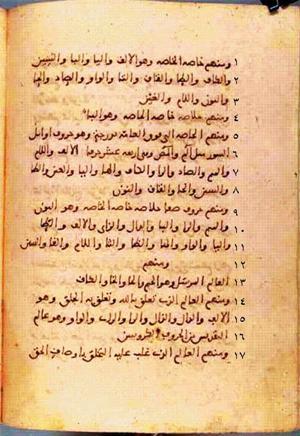 ١ ومنهم خاصة الخاصة وهو الالف واليا والبا والسين
٢ والكاف والطا والقاف والتا والواو والصاد والحا
٣ والنون واللام والغين
٤ ومنهم خلاصة خاصة الخاصة وهو البا
٥ ومنهم الخاصة التي فوق العامة بدرجة وهو حروف اوائل
٦ السور مثل الم والمص وهي اربعة عشر حرفا الالف واللام
٧ والميم والصاد والرا والكاف والها واليا والعين والطا
٨ والسين والحا والقاف والنون
٩ ومنهم حروف صفا خلاصة خاصة الخاصة وهو النون
١٠ والميم والرا والبا والدال والزاي والالف والطا
١١ واليا والواو والها والظا والثا واللام والفا والسين
١٢ ومنهم
١٣ العالم المرسل وهو الجيم والحا والخا والكاف
١٤ ومنهم العالم الذي تعلق بالله وتعلق به الخلق وهو
١٥ الالف والدال والذال والرا والزاي والواو وهو عالم
١٦ التقديس من الحروف الكروبيين
١٧ ومنهم العالم الذي غلب عليه التخلق باوصاف الحق